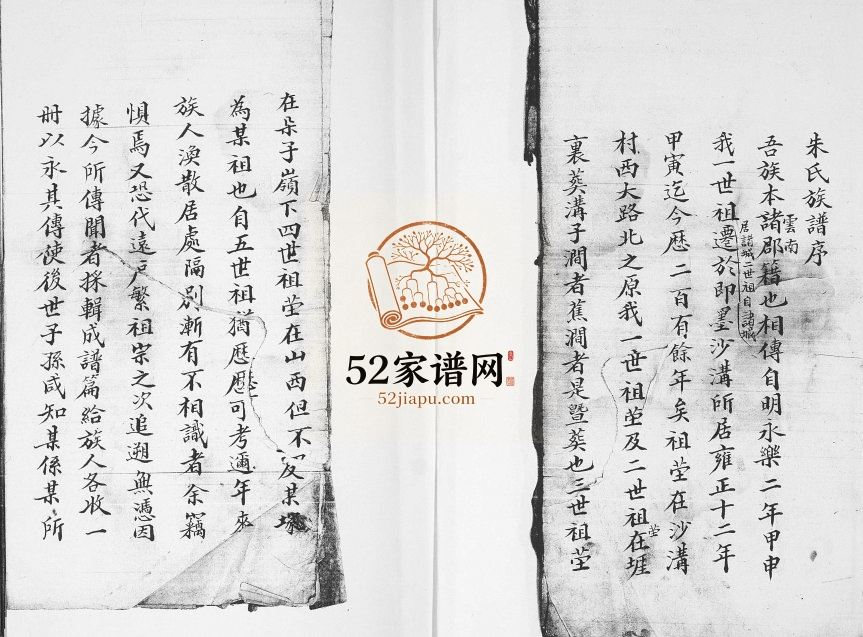 朱氏族譜序
吾族本諸郡籍也相傳自明永樂二年甲申
雲南
我一世祖遷於即墨沙溝所居雍正十二年
居諸城二世祖自諸城
甲寅迄今歷二百有餘年矣祖塋在沙溝
村西大路北之原我一世祖塋及二世祖在堐
塋
裏葬溝子澗者蕉澗者是暨葬也三世祖塋
在朵子嶺下四世祖塋在山西但不某塚
為某祖也自五世祖猶歷歷可考邇年來
族人渙散居處隔別漸有不相識者余竊
惧焉又恐代遠戶繁祖宗之次追遡無憑因
據今所傳聞者採輯成譜篇給族人各收一
冊以永其傳使後世子孫咸知某係某所
52家谱网
52jiapu.com